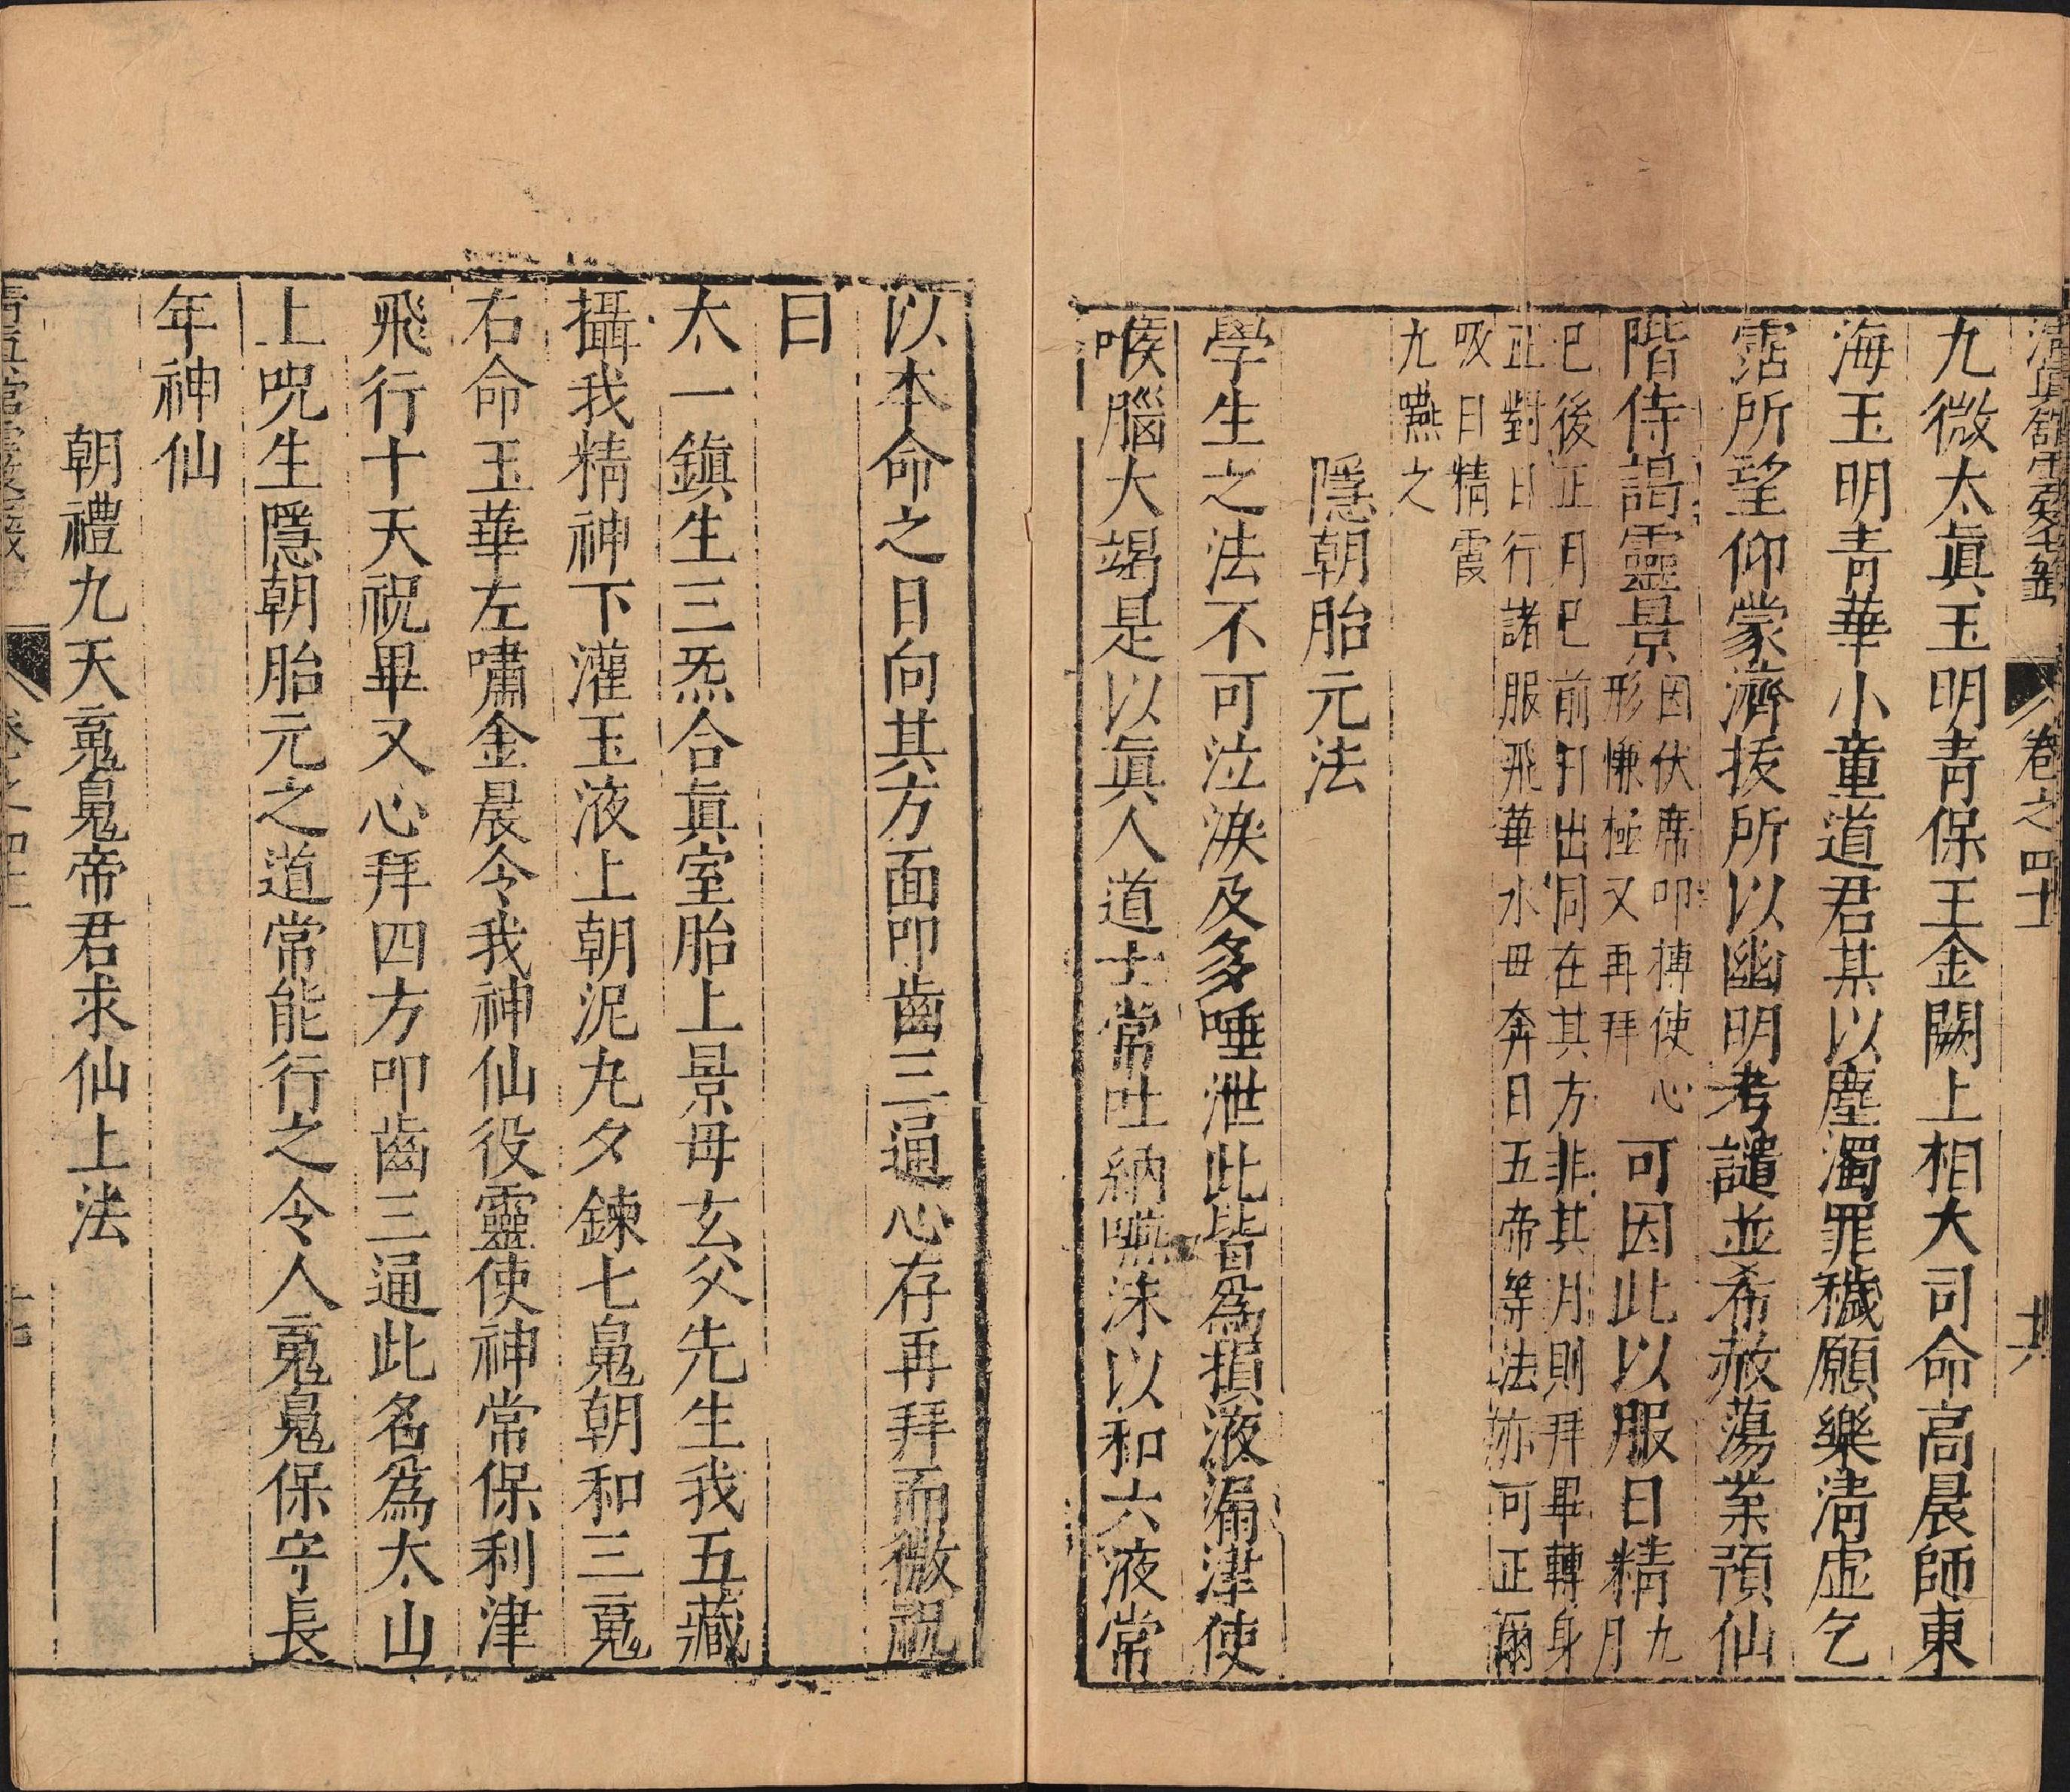 清眞館雲笈七籤 卷之四十一 十六
九微太眞玉明青保王金闕上相大司命高晨師東
海玉明青華小童道君某以塵濁罪穢願樂淸虛乞
霑所望仰蒙濟拔所以幽明考譴並希赦蕩業預仙
階侍謁靈景因伏席叩搏使心形慊極又再拜可因此以服日精九月
巳後正月巳前日出同在其方非其月則拜畢轉身
正對日行諸服飛華水毋奔日五帝等法亦可正爾
吸日精霞
九嚥之
隱朝胎元法
學生之法不可泣淚及多唾泄此皆爲損液漏津使
喉腦大竭是以眞人道士常吐納嚥沫以和六液常
以本命之日向其方面叩齒三通心存再拜而微祝
曰
太一鎮生三炁合眞室胎上景毋玄父先生我五藏
攝我精神下灌玉液上朝泥丸夕鍊七䰟朝和三䰟
右命玉華左嘯金晨令我神仙役靈使神常保利津
飛行十天祝畢又心拜四方叩齒三通此名爲太山
上呪生隱朝胎元之道常能行之令人䰟鬼保守長
年神仙
朝禮九天䰟鬼帝君求仙上法
卷之四十一 十七